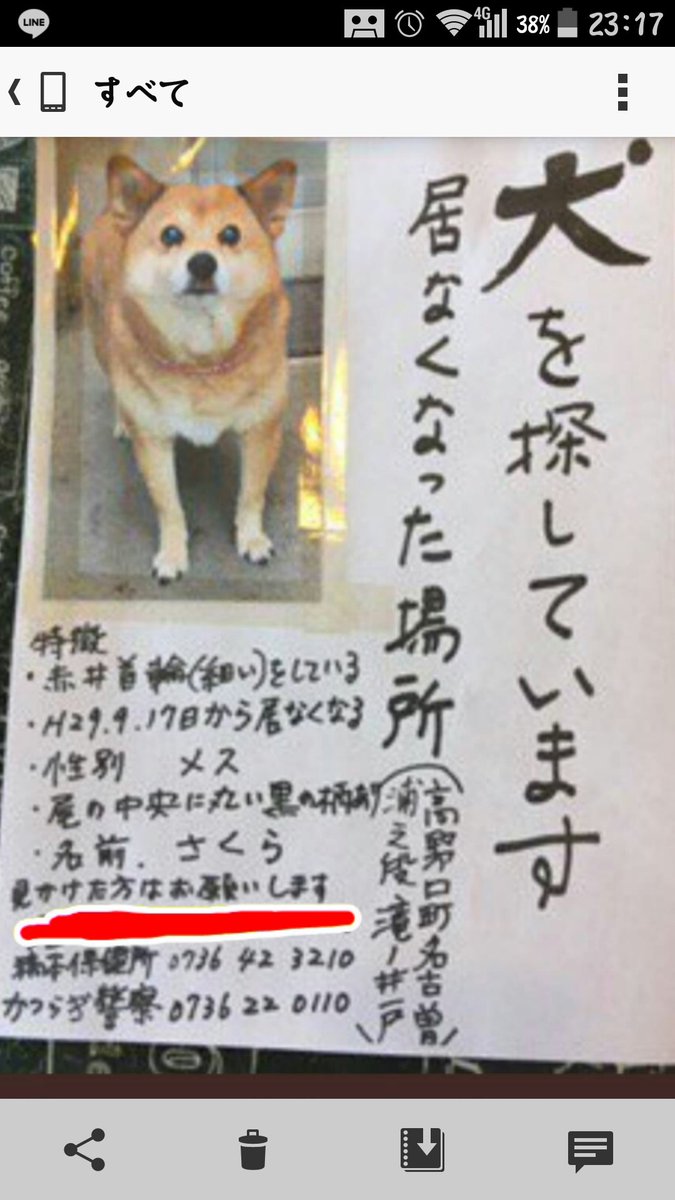 LINE
4G
38%
23:17
すべて
犬を探しています
居なくなった場所
(高野口町名古曽
浦之段 滝ノ井戸)
特徴
・赤井首輪(細い)をしている
・H29.9.17日から居なくなる
・性別 メス
・尾の中央に丸い黒の柄有
・名前. さくら
見かけた方はお願いします
橋本保健所 0736 42 3210
かつらぎ警察 0736 22 0110
Coffee